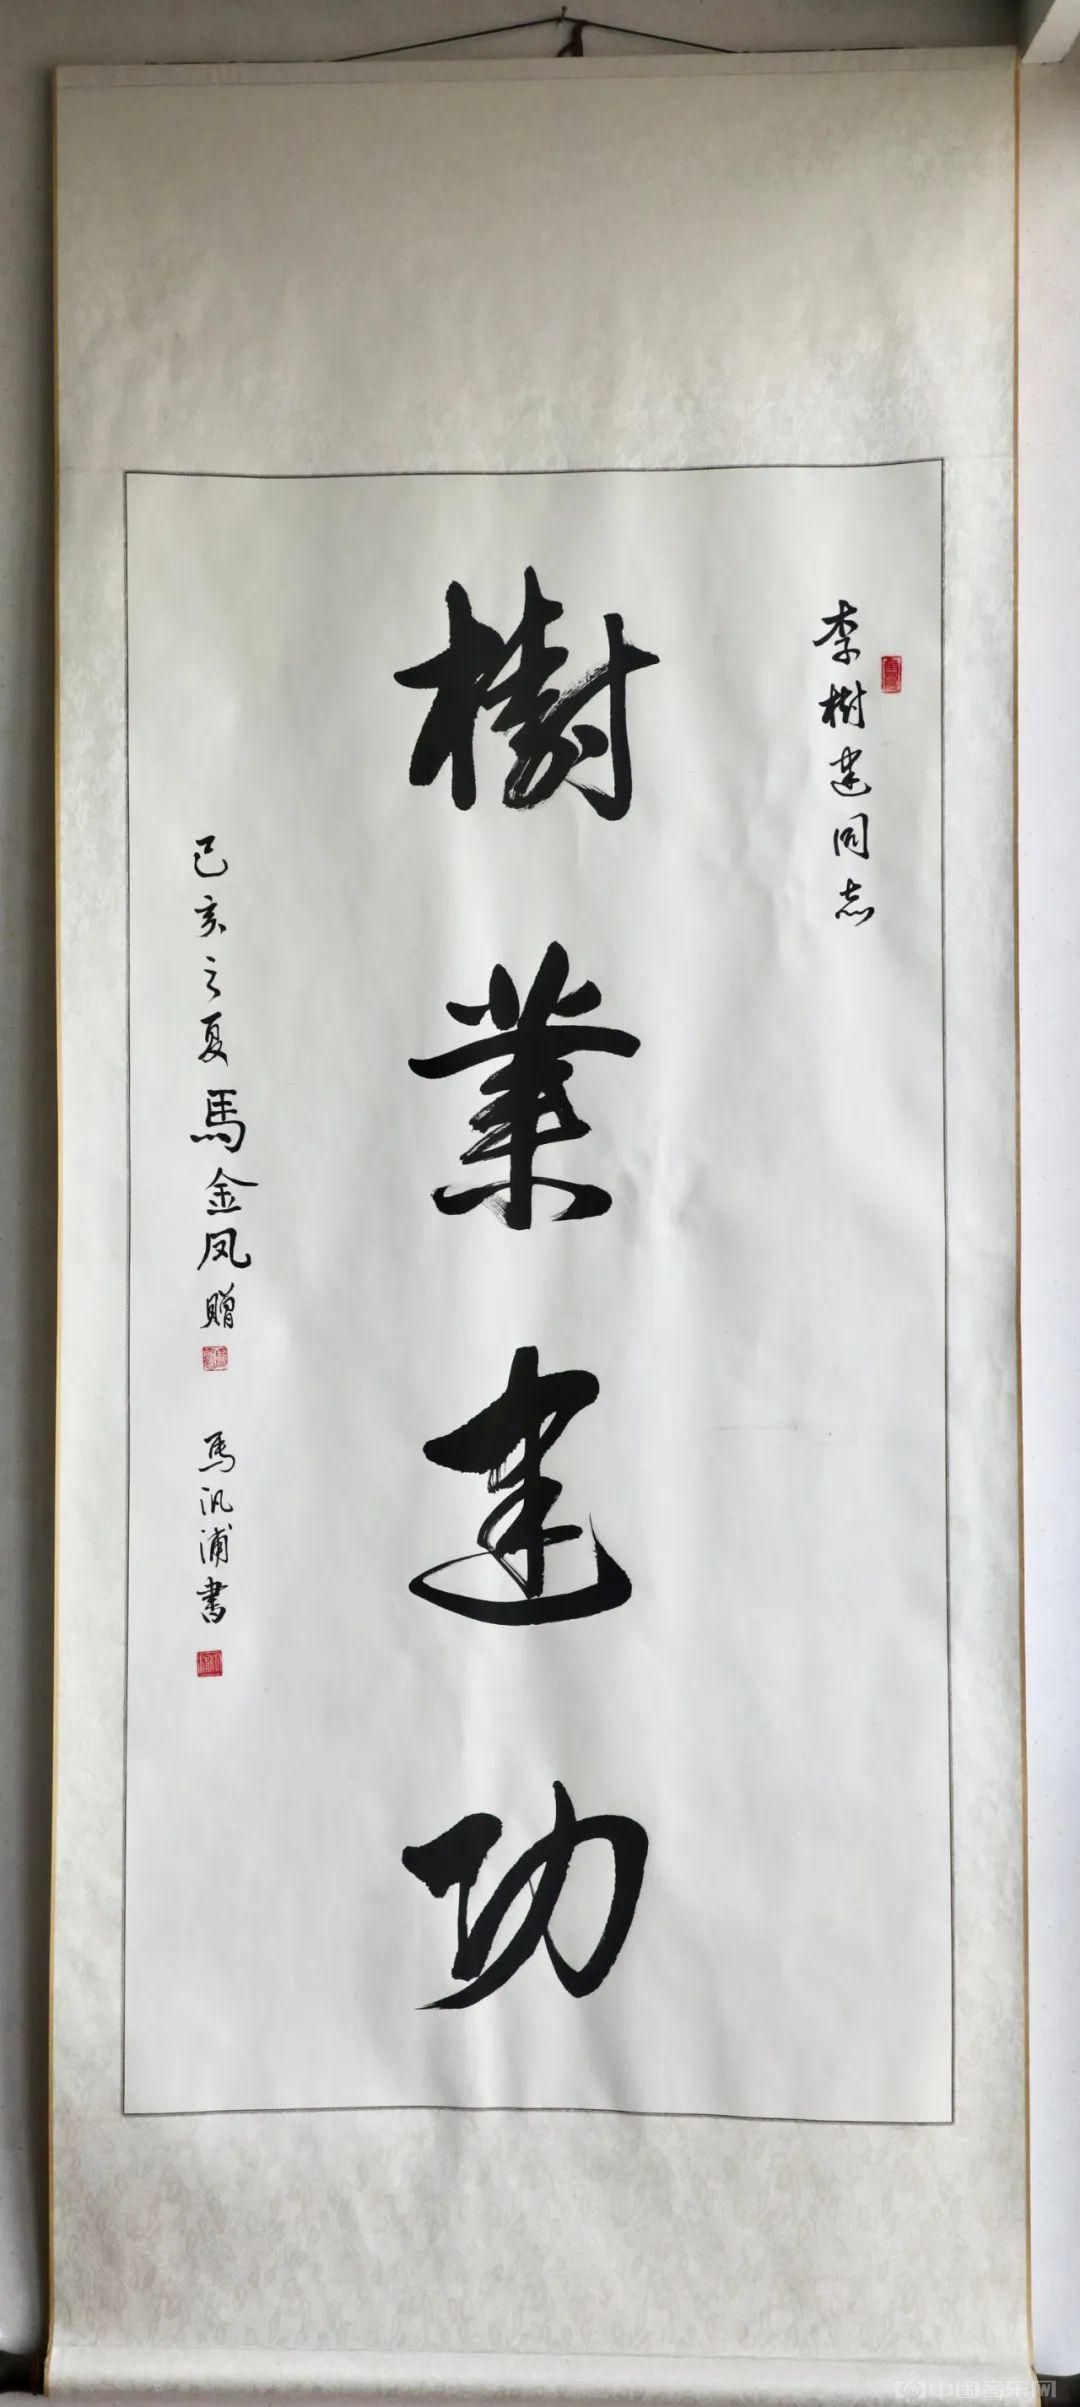 李樹建同志
樹業建功
己亥之夏馬金凤贈
馬汎浦書
中国音乐网